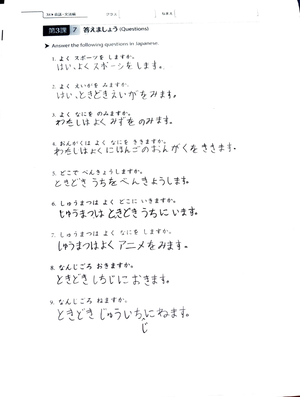 第3課 7 答えましょう (Questions)
Answer the following questions in Japanese.
1. よく スポーツを しますか。
はい、よく スポーツを します。
2. よく えいがを みますか。
はい、ときどきえいがをみます。
3. よく なにを のみますか。
わたしはよくみずをのみます。
4. おんがくは よく なにを ききますか。
わたしはよくにほんごのおんがくをききます。
5. どこで べんきょうしますか。
ときどきうちをべんきょうします。
6. しゅうまつは よく どこに いきますか。
しゅうまつはときどきうちにいます。
7. しゅうまつは よく なにを しますか。
しゅうまつはよくアニメをみます。
8. なんじごろ おきますか。
ときどきしちじにおきます。
9. なんじごろ ねますか。
ときどきじゅういちにねます。
じ